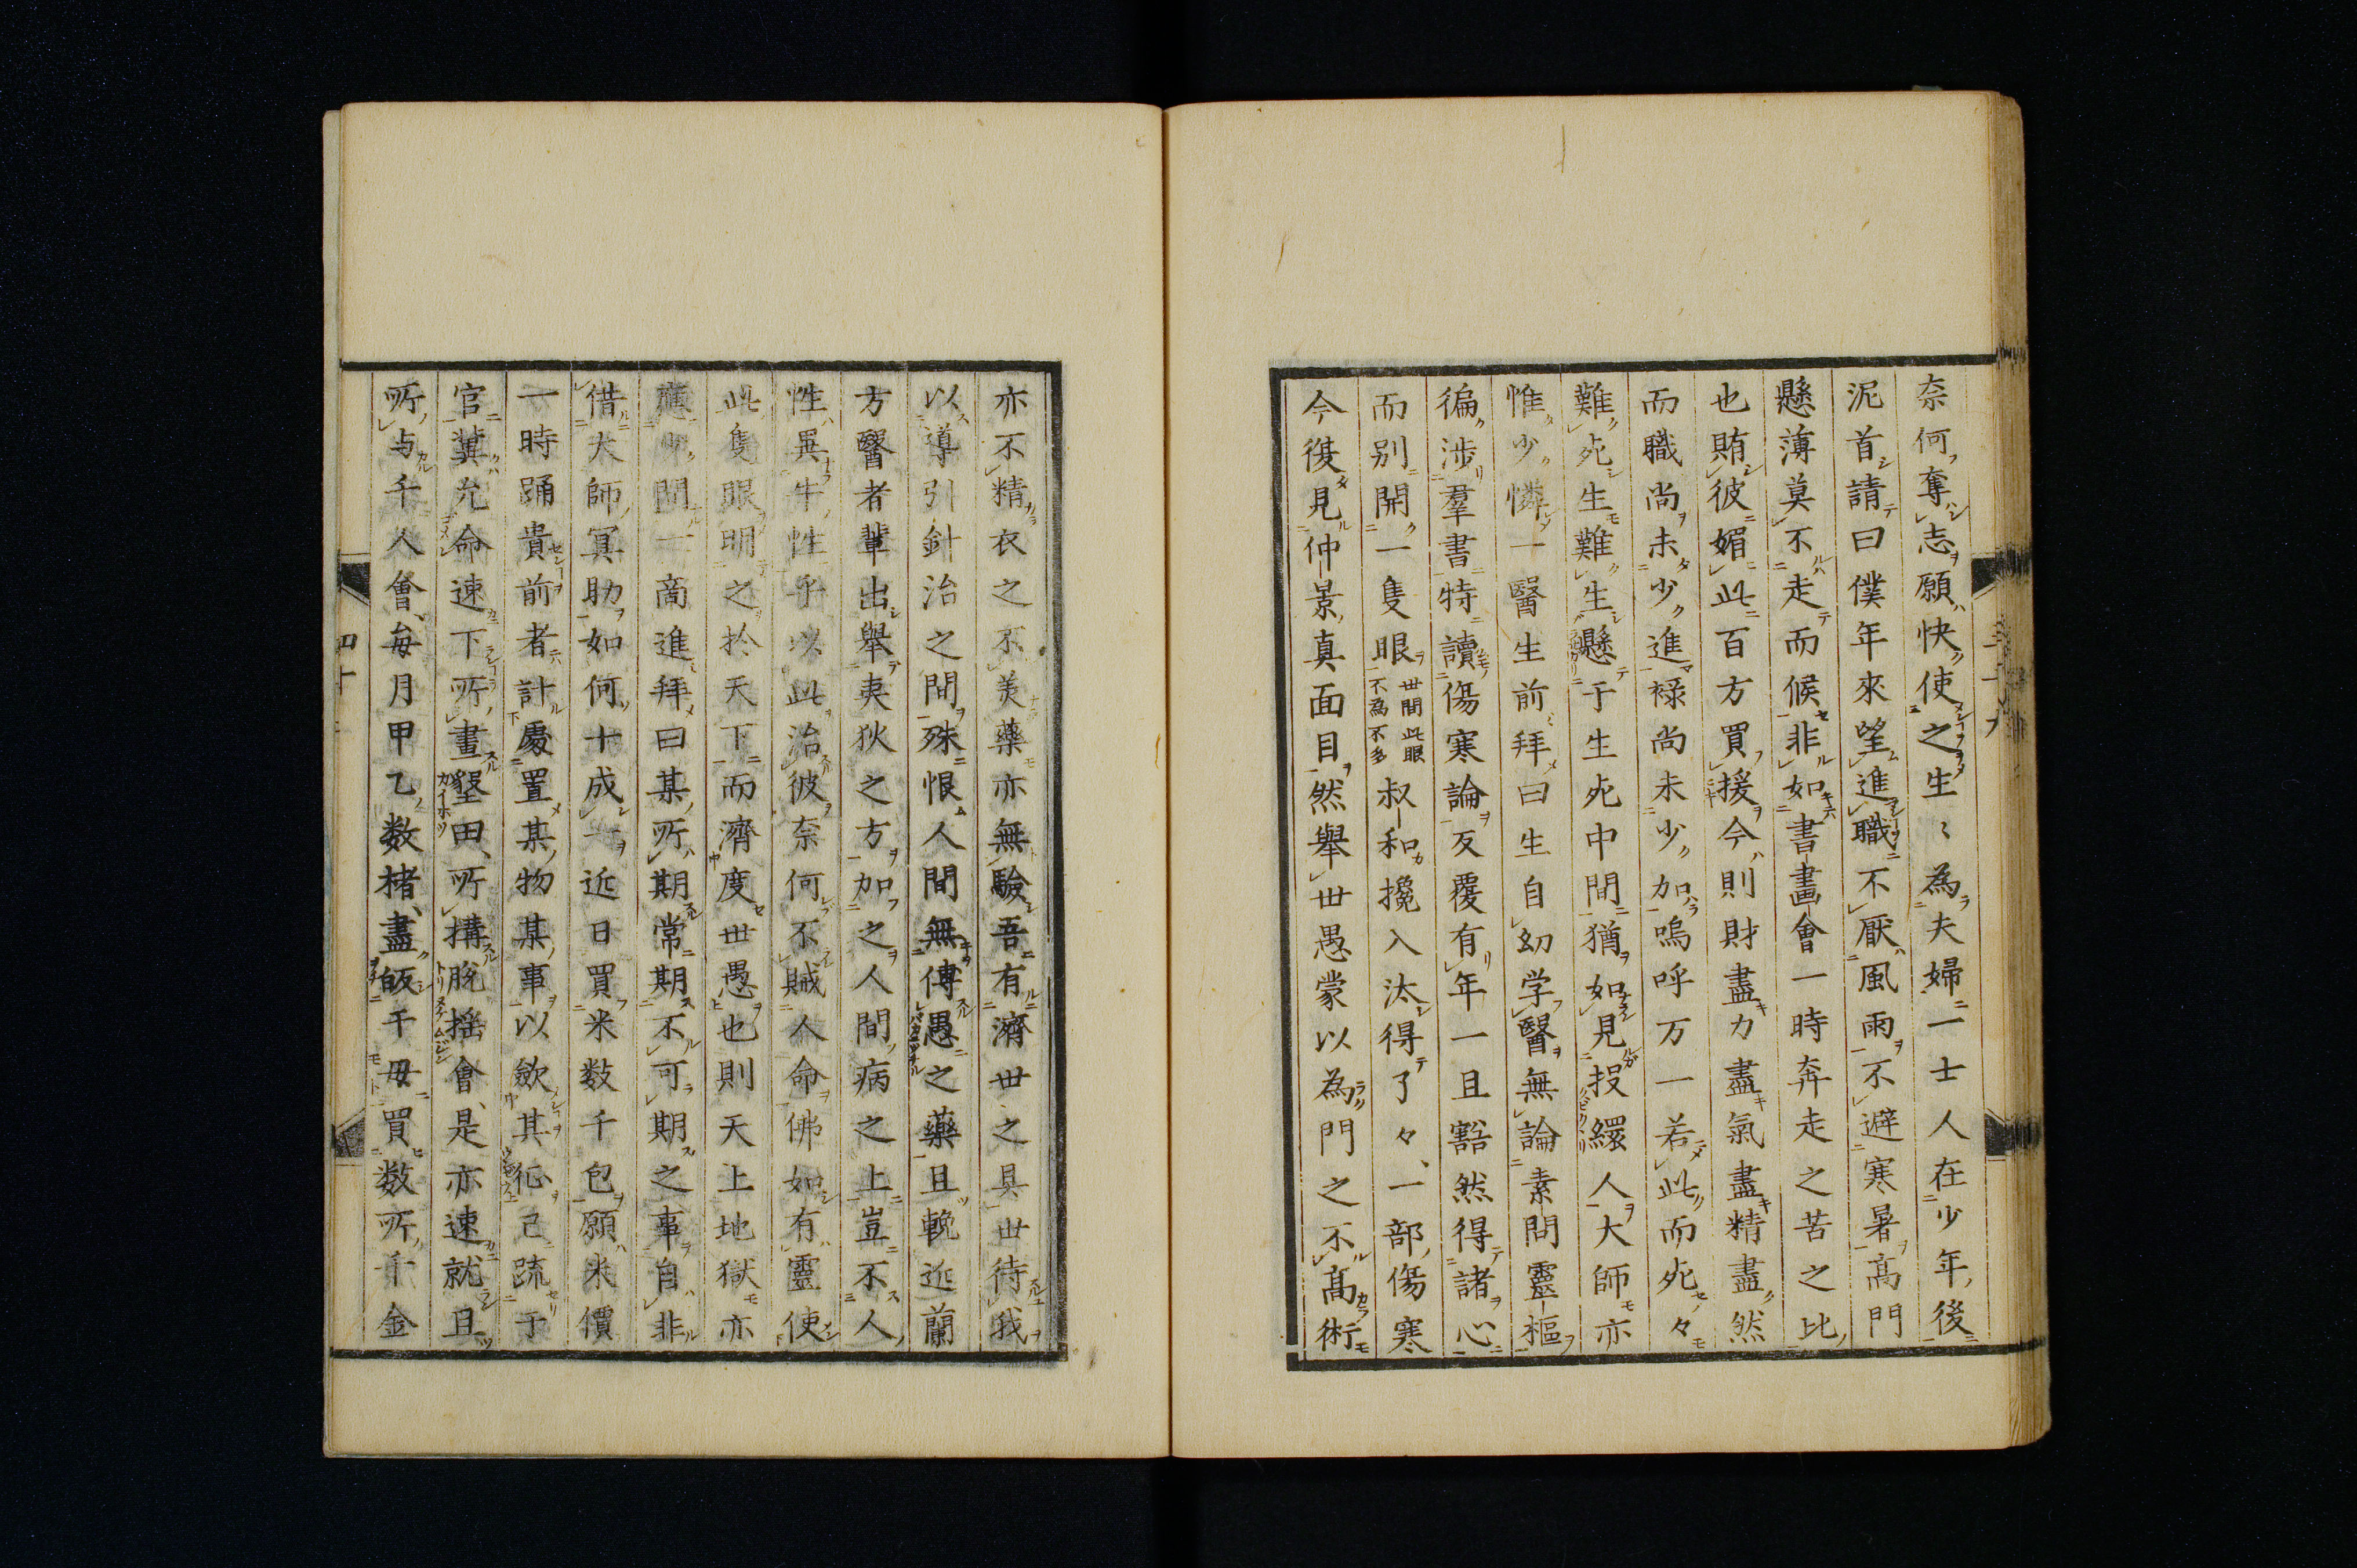 奈何奪志願快使之生〻為夫婦一士人在少年後
泥首請曰僕年來望進職不厭風雨不避寒暑高門
懸薄莫不走而候非如書畫會一時奔走之苦之比
也賄彼媚此百方買援今則財盡力盡氣盡精盡然
而職尚未少進祿尚未少加嗚呼万一若此而死々
難死生難生懸于生死中間猶如見投繯人大師亦
惟少憐一醫生前拜曰生自幼学醫無論素問靈樞
徧涉羣書特讀傷寒論反覆有年一旦豁然得諸心
而別開一隻眼世間此眼不為不多叔和攙入汰得了々一部傷寒
今復見仲景真面目然舉世愚蒙以為門之不高術
亦不精衣之不美藥亦無驗吾有濟世之具世待我
以導引針治之間殊恨人間無傳愚之藥且輓近蘭
方醫者輩出舉夷狄之方加之人間病之上豈不人
性異牛性乎以此治彼奈何不賊人命佛如有靈使
此隻眼明之於天下而濟度世愚也則天上地獄亦
應少間一商進拜曰某所期常期不可期之事自非
借大師冥助如何十成一近日買米数千包願米價
一時踊貴前者計處置某物某事以歛其怨己疏于
官冀允命速下所畫墾田所搆脫搖會是亦速就且
所与千人會每月甲乙数楮盡皈干毋買数所千金
四十